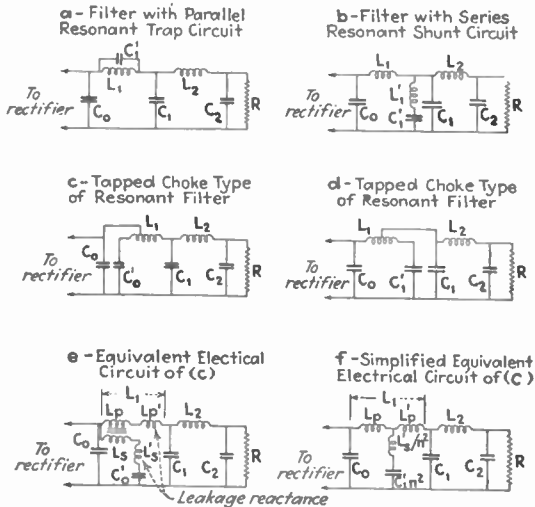 a-Filter with Parallel
Resonant Trap Circuit
C₁'
L₁
L₂
To
rectifier
C₀
C₁
C₂
R
b-Filter with Series
Resonant Shunt Circuit
L₁
L₂
To
rectifier
C₀
L₁'
C₁'
C₁
C₂
R
c-Tapped Choke Type
of Resonant Filter
L₁
L₂
C₀
To
rectifier
C₀'
C₁
C₂
R
d-Tapped Choke Type
of Resonant Filter
L₁
L₂
To
rectifier
C₀
C₁'
C₁
C₂
R
e-Equivalent Electical
Circuit of (c)
L₁
Lp
Lp'
L₂
C₀
To
rectifier
Ls
Ls'
C₀'
C₁
C₂
R
Leakage reactance
f-Simplified Equivalent
Electrical Circuit of (C)
L₁
Lp
Lp'
L₂
To
rectifier
C₀
Ls/n²
C₁'n²
C₁
C₂
R